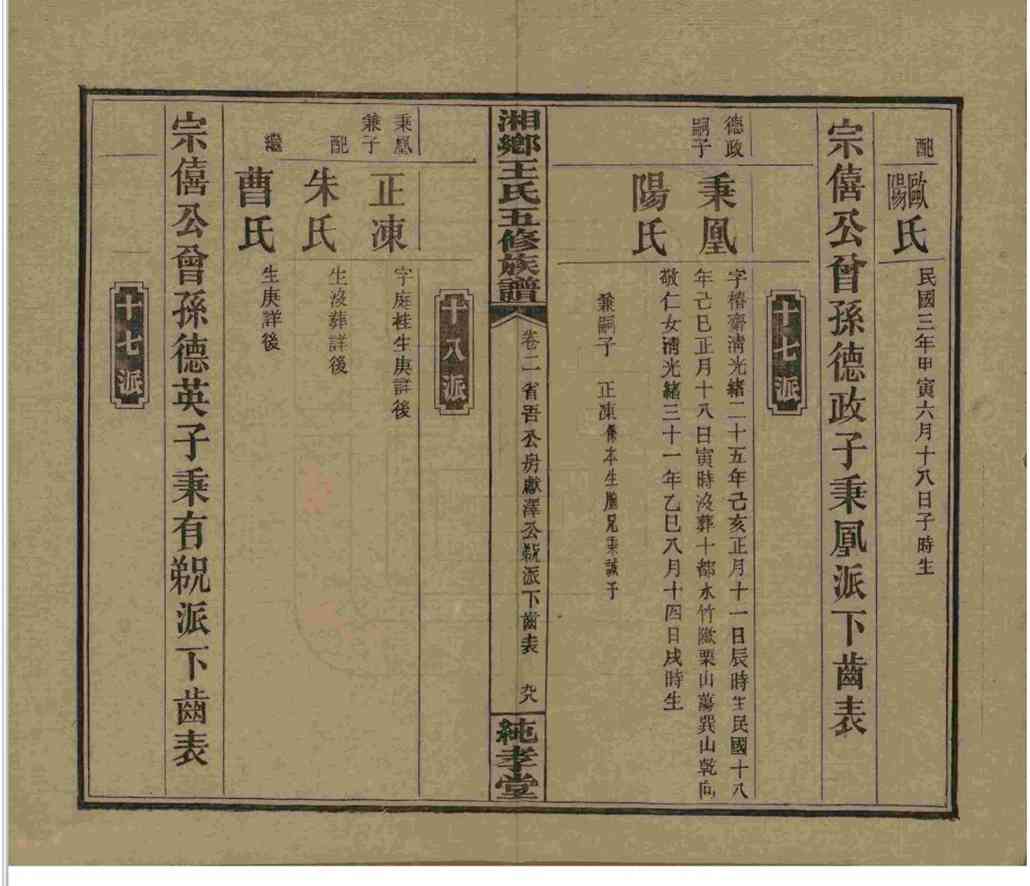 配
歐陽氏
民國三年甲寅六月十八日子時生
宗僖公曾孫德政子秉鳳派下齒表
十七派
德政嗣子
秉鳳
字椿齋清光緒二十五年己亥正月十一日辰時生民國十八
年己巳正月十八日寅時沒葬十都水竹㘭栗山蕩巽山乾向
陽氏
敬仁女清光緒三十一年乙巳八月十四日戌時生
兼嗣子 正凍係本生胞兄秉誠子
湘鄉王氏五修族譜
卷二 省吾公房獻澤公𧠇派下齒表 九八
純孝堂
十八派
秉鳳兼子
正凍
字庭桂生庚詳後
配
朱氏
生沒葬詳後
繼
曹氏
生庚詳後
宗僖公曾孫德英子秉有𧠇派下齒表
十七派